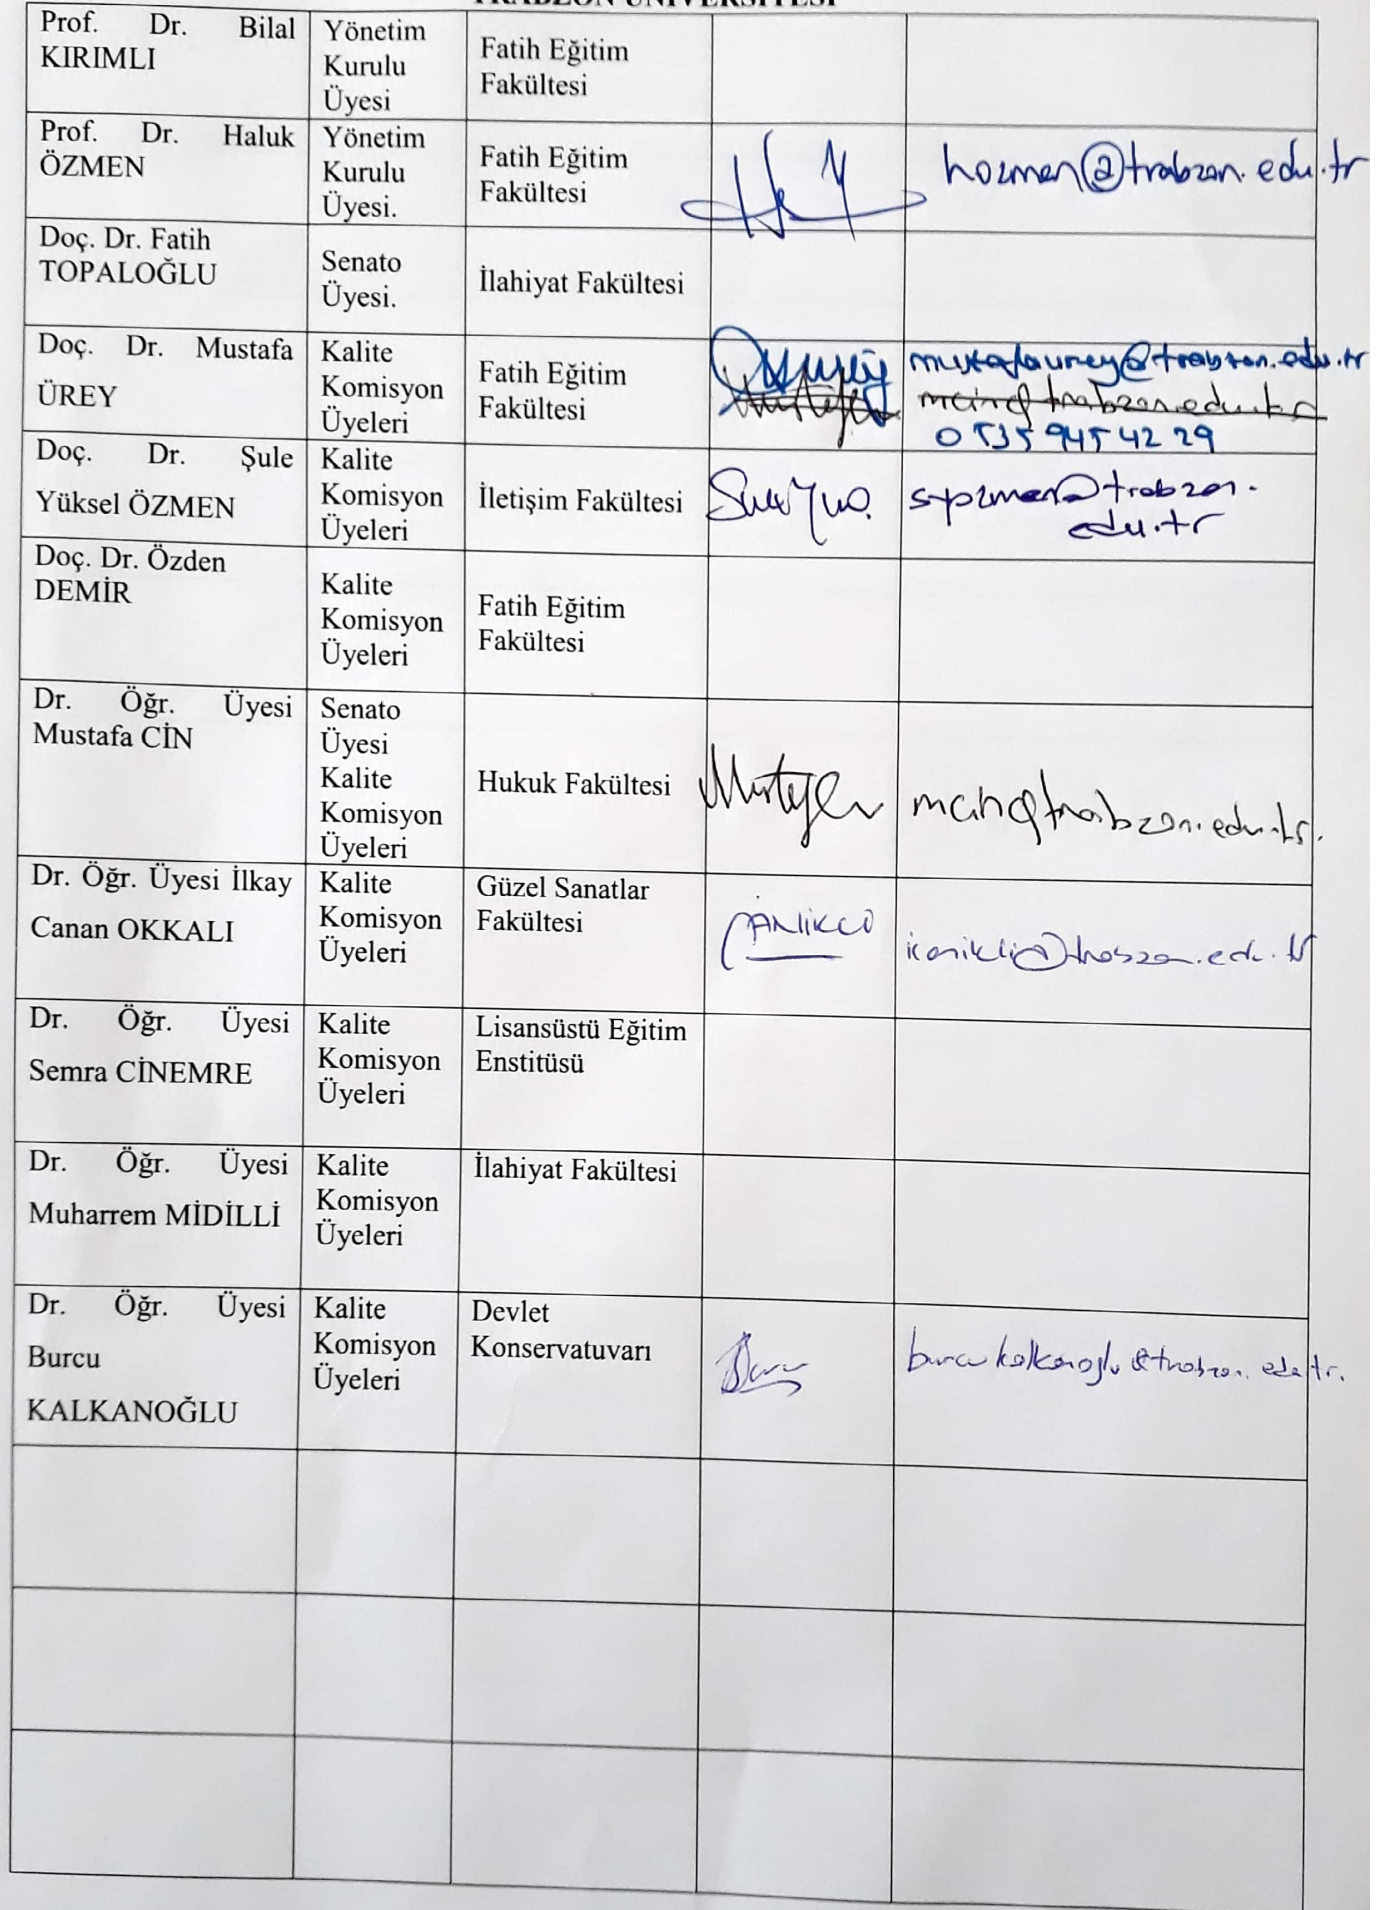 TRABZON ÜNİVERSİTESİ
Prof. Dr. Bilal
KIRIMLI
Yönetim
Kurulu
Üyesi
Fatih Eğitim
Fakültesi
Prof. Dr. Haluk
ÖZMEN
Yönetim
Kurulu
Üyesi.
Fatih Eğitim
Fakültesi
hozmen@trabzon.edu.tr
Doç. Dr. Fatih
TOPALOĞLU
Senato
Üyesi.
İlahiyat Fakültesi
Doç. Dr. Mustafa
ÜREY
Kalite
Komisyon
Üyeleri
Fatih Eğitim
Fakültesi
mustafaurey@trabzon.edu.tr
mcin@trabzon.edu.tr
0535 945 42 29
Doç. Dr. Şule
Yüksel ÖZMEN
Kalite
Komisyon
Üyeleri
İletişim Fakültesi
syozmen@trabzon.
edu.tr
Doç. Dr. Özden
DEMİR
Kalite
Komisyon
Üyeleri
Fatih Eğitim
Fakültesi
Dr. Öğr. Üyesi
Mustafa CİN
Senato
Üyesi
Kalite
Komisyon
Üyeleri
Hukuk Fakültesi
mcin@trabzon.edu.tr.
Dr. Öğr. Üyesi İlkay
Canan OKKALI
Kalite
Komisyon
Üyeleri
Güzel Sanatlar
Fakültesi
icanikli@trabzon.edu.tr
Dr. Öğr. Üyesi
Semra CİNEMRE
Kalite
Komisyon
Üyeleri
Lisansüstü Eğitim
Enstitüsü
Dr. Öğr. Üyesi
Muharrem MİDİLLİ
Kalite
Komisyon
Üyeleri
İlahiyat Fakültesi
Dr. Öğr. Üyesi
Burcu
KALKANOĞLU
Kalite
Komisyon
Üyeleri
Devlet
Konservatuvarı
burcukalkanoglu@trabzon.edu.tr.